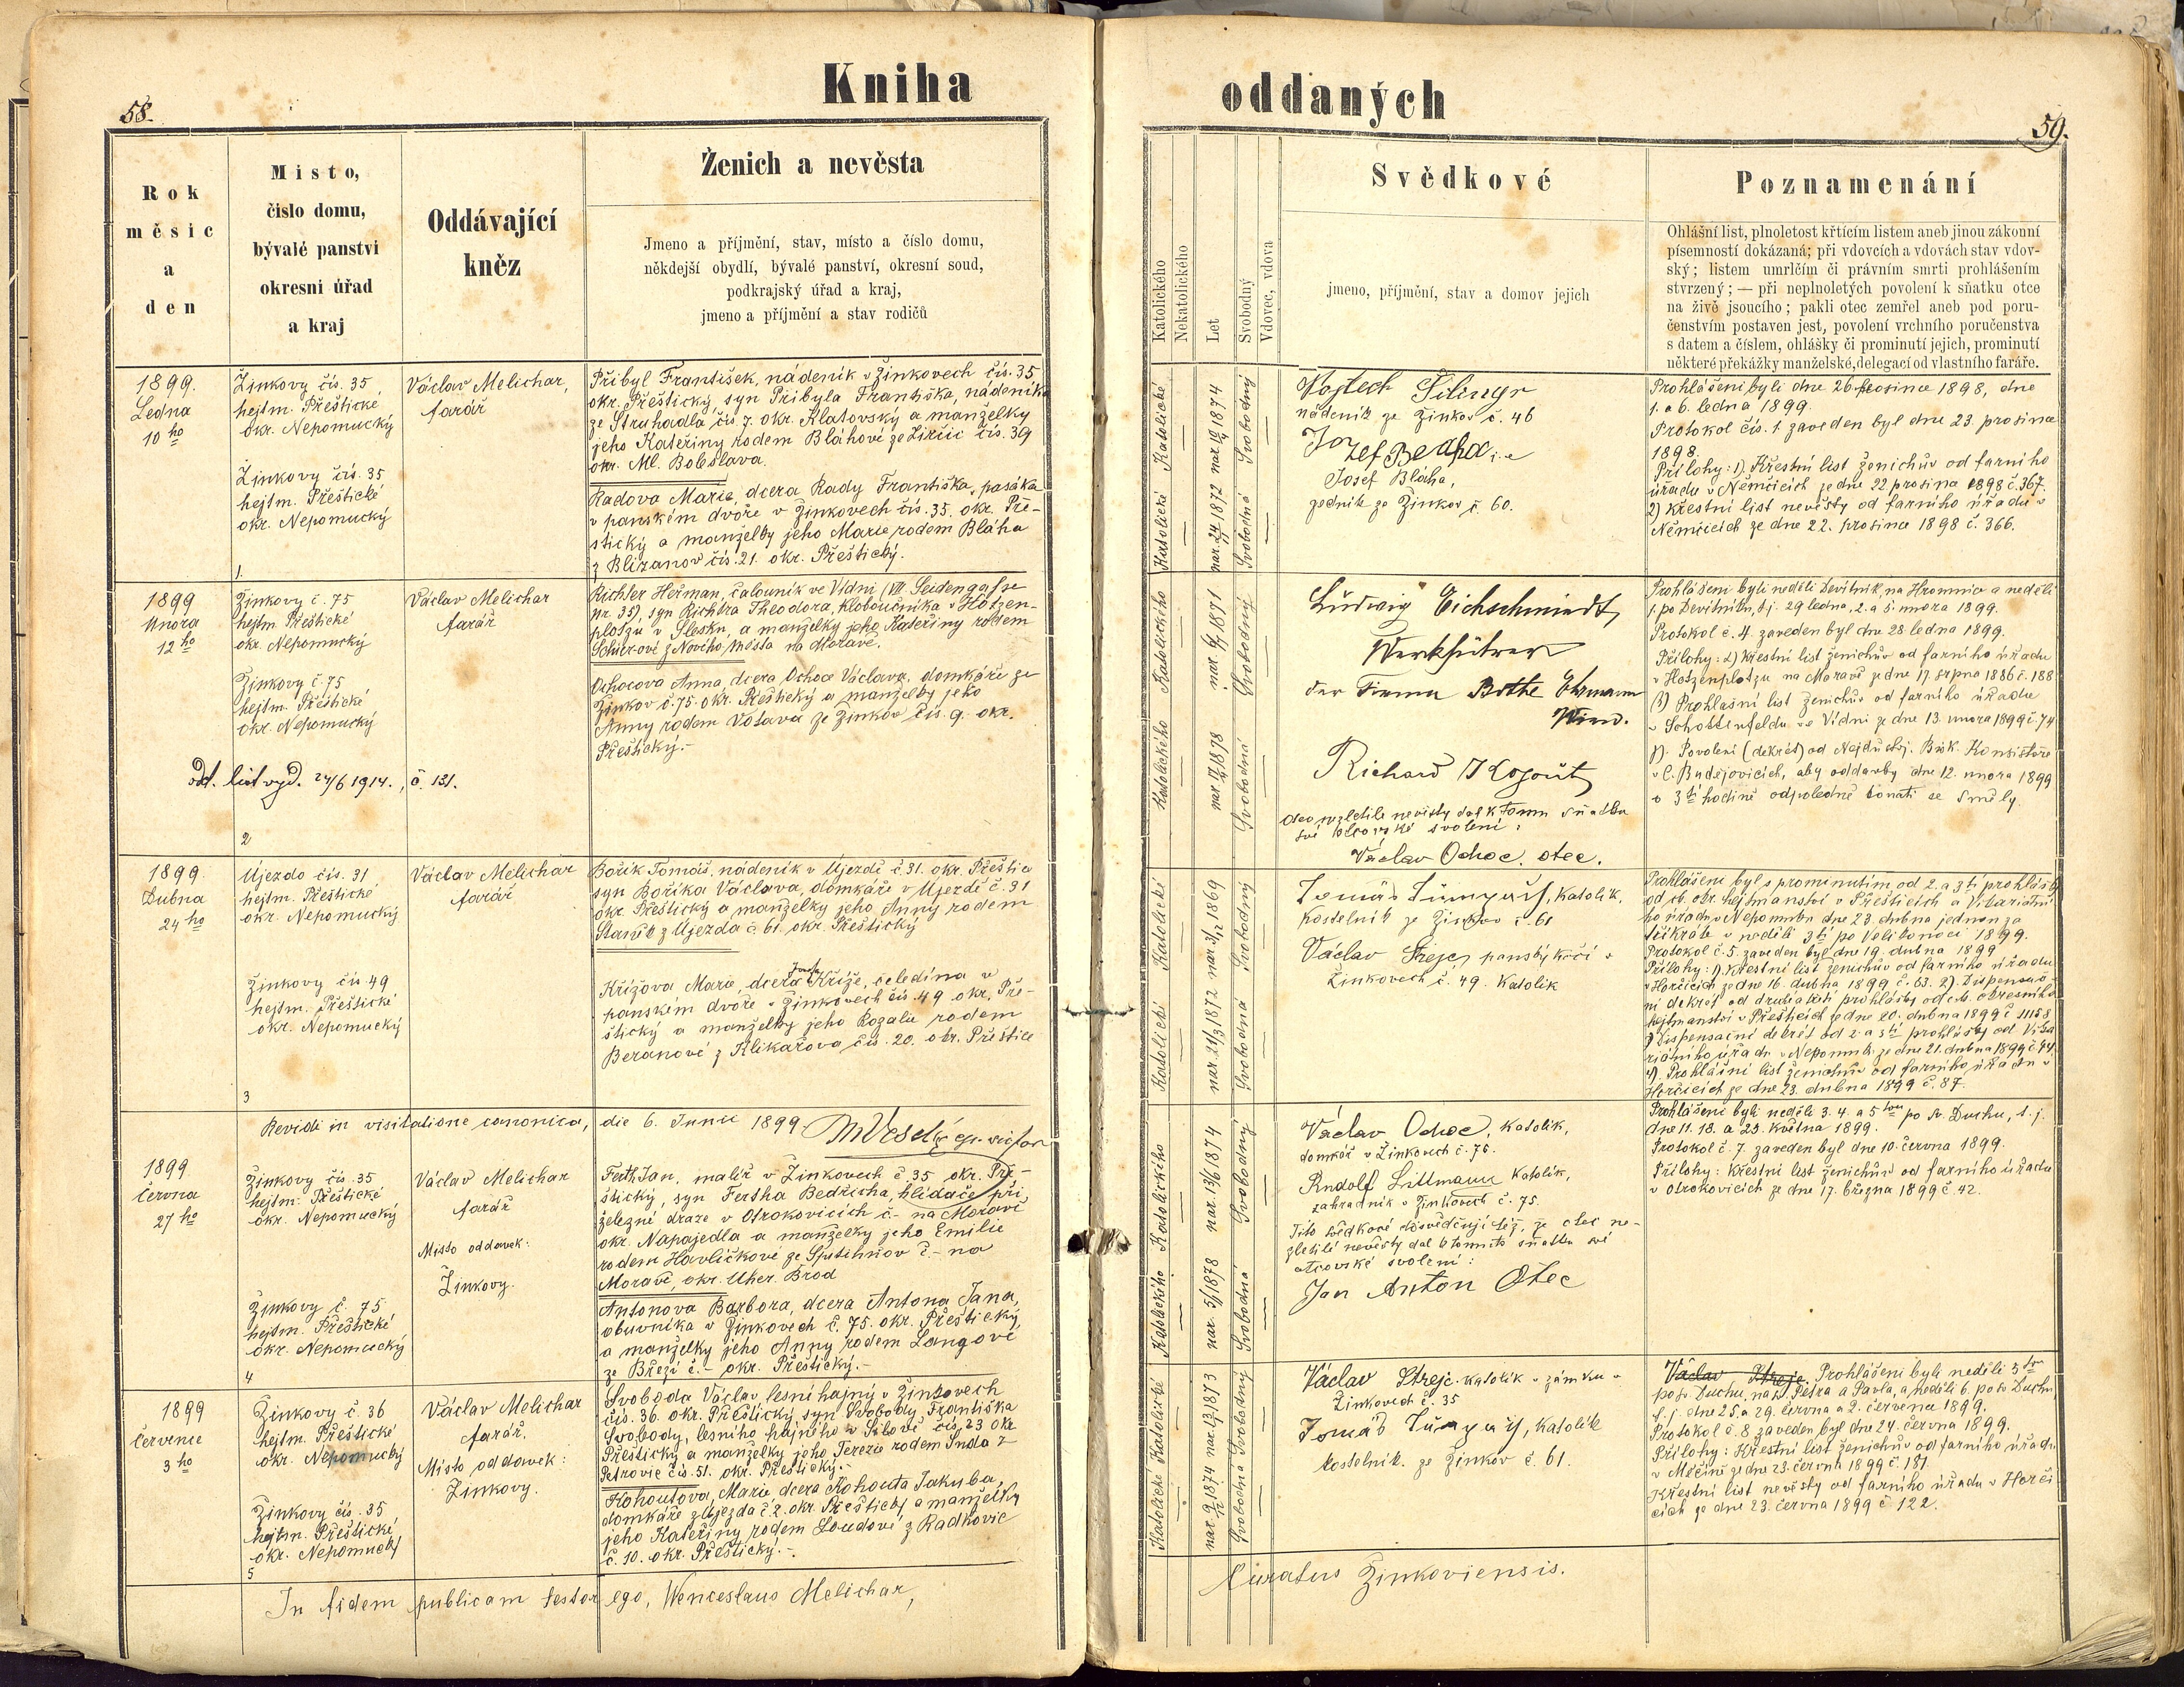 58.
Kniha
oddaných
59.
Rok
měsic
a
den
Misto,
čislo domu,
bývalé panstvi
okresni úřad
a kraj
Oddávající
kněz
Ženich a nevěsta
Jmeno a příjmění, stav, místo a číslo domu,
někdejší obydlí, bývalé panství, okresní soud,
podkrajský úřad a kraj,
jmeno a příjmění a stav rodičů
Katolického
Nekatolického
Let
Svobodný
Vdovec, vdova
Svědkové
jmeno, příjmění, stav a domov jejich
Poznamenání
Ohlášní list, plnoletost křticím listem aneb jinou zákonní
písemností dokázaná; při vdovcích a vdovách stav vdov-
ský; listem umrlčím či právním smrti prohlášením
stvrzený; — při neplnoletých povolení k sňatku otce
na živě jsoucího; pakli otec zemřel aneb pod poru-
čenstvím postaven jest, povolení vrchního poručenstva
s datem a číslem, ohlášky či prominutí jejich, prominutí
některé překážky manželské, delegací od vlastního faráře.
1899.
Ledna
10 ho
Žinkovy čís. 35
hejtm. Přeštické
okr. Nepomucký
Žinkovy čís. 35
hejtm. Přeštické
okr. Nepomucký
1.
Václav Melichar,
farář
Přibyl František, nádeník v Žinkovech čís. 35
okr. Přeštický, syn Přibyla Františka, nádeníka
ze Struhadla čís. 7. okr. Klatovský a manželky
jeho Kateřiny rodem Bláhové ze Žirčic čís. 39
okr. Ml. Boleslava.
Radova Marie, dcera Rady Františka, pasáka
v panském dvoře v Žinkovech čís. 35. okr. Pře-
štický a manželky jeho Marie rodem Bláha
z Blizanov čís. 21. okr. Přeštický.
Katolické
nar. 19/4 1874
Svobodný
Katolické
nar. 24/1 1872
Svobodná
Vojtech Šilingr
nádeník ze Žinkov č. 46
Jozef Beaha
Josef Bláha,
zedník ze Žinkov č. 60.
Prohlášeni byli dne 26. prosince 1898, dne
1. a 6. ledna 1899.
Protokol čís. 1. zaveden byl dne 23. prosince
1898.
Přílohy: 1) Křestní list ženichův od farního
úřadu v Němčicích ze dne 22 prosince 1898 č. 367.
2) křestní list nevěsty od farního úřadu v
Němčicích ze dne 22. prosince 1898 č. 366.
1899
Února
12 ho
Žinkovy č. 75
hejtm. Přeštické
okr. Nepomucký
Žinkovy č. 75
hejtm. Přeštické
okr. Nepomucký
odd. list vyd. 24/6 1914., č. 131.
2
Václav Melichar
farář
Richter Heřman, čalouník ve Vídni (VII Seidengasse
nr. 35), syn Richtra Theodora, kloboučníka v Hotzen-
plotzu v Slesku, a manželky jeho Kateřiny rodem
Schier-ové z Nového města na Moravě.
Ochocova Anna, dcera Ochoce Václava, domkáře ze
Žinkov č. 75. okr. Přeštický a manželky jeho
Anny rodem Votava ze Žinkov čís. 9. okr.
Přeštický.-
Katolického
1871
Svobodný
Katolického
1878
Svobodná
Ludwig Eichschmiedt,
Werkführer
der Firma Bothe Ehrmann
Wien.
Richard Kogout
otec nezletilé nevěsty dal k tomu sňatku
své otcovské svolení:
Václav Ochoc, otec.
Prohlášeni byli neděli Devítník, na Hromnice a neděli
1. po Devítníku, t.j. 29 ledna, 2. a 5. února 1899.
Protokol č. 4. zaveden byl dne 28. ledna 1899.
Přílohy: Křestní list ženichův od farního úřadu
v Hotzenplotzu na Moravě ze dne 17 srpna 1886 č. 188
Prohlašní list ženichův od farního úřadu
v Schottenfeldu ve Vídni ze dne 13. února 1899 č. 74
Povolení (dekret) od Nejdůstoj. Bisk. Konsistoře
v Č. Budějovicích, aby oddavky dne 12. února 1899
o 3 tí hodině odpoledne konati se směly.
1899.
Dubna
24 ho
Újezdo čís. 31
hejtm. Přeštické
okr. Nepomucký
Žinkovy čís 49
hejtm. Přeštické
okr. Nepomucký
3
Václav Melichar
farář
Bořík Tomáš, nádeník v Újezdě č. 31. okr. Přeštic
syn Boříka Václava, domkáře v Újezdě č. 31
okr. Přeštický a manželky jeho Anny rodem
Staněk z Újezda č. 61. okr. Přeštický
Křížova Marie, dcera Josefa Kříže, čeledína v
panském dvoře v Žinkovech čís. 49 okr. Pře-
štický a manželky jeho Rozalie rodem
Beranové z Klikařova čís. 20. okr. Přeštice
Katolické
1869
Svobodný
Katolické
nar. 21/3 1872
Svobodná
Tomáš, katolík,
kostelník ze Žinkov č. 61
Václav Strejc, panský kočí v
Žinkovech č. 49. Katolík
Prohlášeni byl s prominutím od 2. a 3 tí prohlášky
od ct. okr. hejtmanství v Přešticích a Vikariátní-
ho úřadu v Nepomuku dne 23. dubna jednou za
třikráte v neděli 3 tí po Velikonoci 1899.
Protokol č. 5. zaveden byl dne 19. dubna 1899
Přílohy: 1) Křestní list ženichův od farního úřadu
v Horčicích ze dne 16. dubna 1899 č. 63. 2). Dispensač-
ní dekret od druhé a třetí prohlášky od c.k. okresního
hejtmanství v Přešticích ze dne 20. dubna 1899 č 11158
3) Dispensační dekret od 2. a 3 tí prohlášky od Vika-
riátního úřadu v Nepomuku ze dne 21. dubna 1899 č. 44
4). Prohlašní list ženichův od farního úřadu v
Horčicích ze dne 23. dubna 1899 č. 87.
Revidi in visitatione canonica, die 6. Junii 1899. Veselý
1899
Června
27 ho
Žinkovy čís. 35
hejtm. Přeštické
okr. Nepomucký
Žinkovy č. 75,
hejtm. Přeštické
okr. Nepomucký
4
Václav Melichar
farář
Místo oddavek:
Žinkovy.
Ferth Jan, malíř v Žinkovech č. 35 okr. Pře-
štický, syn Fertha Bedřicha, hlídače při
železné dráze v Otrokovicích č.- na Moravě
okr. Napajedla a manželky jeho Emilie
rodem Havlíčkové ze Spitihňov č.- na
Moravě, okr. Uher. Brod
Antonova Barbora, dcera Antona Jana,
obuvníka v Žinkovech č. 75. okr. Přeštický,
a manželky jeho Anny rodem Langové
ze Březí č.- okr. Přeštický.-
Katolického
nar. 13/6 1874
Svobodný
Katolického
1878
Svobodná
Václav Ochoc, Katolík,
domkář v Žinkovech č. 76.
Rudolf Littmann Katolík,
zahradník v Žinkovech č. 75.
Tito svědkové dosvědčují též, že otec ne-
zletilé nevěsty dal k tomuto sňatku své
otcovské svolení:
Jan Anton Otec
Prohlášeni byli neděle 3. 4. a 5 tou po sv. Duchu, t. j.
dne 11. 18. a 25. května 1899.
Protokol č. 7. zaveden byl dne 10. června 1899.
Přílohy: Křestní list ženichův od farního úřadu
v Otrokovicích ze dne 17. března 1899 č. 42.
1899
července
3 ho
Žinkovy č. 36
hejtm. Přeštické
okr. Nepomucký
Žinkovy čís. 35
hejtm. Přeštické,
okr. Nepomucký
5
Václav Melichar
farář.
Místo oddavek:
Žinkovy.
Svoboda Václav, lesní hajný v Žinkovech
čís. 36. okr. Přeštický, syn Svobody Františka
Svobody, lesního hajného v čís. 23 okr.
Přeštický a manželky jeho Terezie rodem Jnda z
Petrovic čís. 51. okr. Přeštický.-
Kohoutova, Marie dcera Kohouta Jakuba,
domkáře z Újezda č. 2. okr. Přeštický a manželky
jeho Kateřiny rodem Loudové z Radkovic
č. 10. okr. Přeštický.-
Katolické
1873
Svobodný
Katolické
1874
Svobodná
Václav Strejc. katolík v zámku v
Žinkovech č. 35
Tomáš, katolík
kostelník. ze Žinkov č. 61.
Václav Strejc. Prohlášeni byli neděli 5 tou
po sv. Duchu, na sv. Petra a Pavla, a neděli 6. po sv. Duchu
t. j. dne 25. a 29. června a 2. července 1899.
Protokol č. 8 zaveden byl dne 24. června 1899.
Přílohy: Křestní list ženichův od farního úřadu
v Měčíně ze dne 23. června 1899 č. 181.
Křestní list nevěsty od farního úřadu v Horči-
cích ze dne 23. června 1899 č 122.
In fidem publicam testor ego, Wenceslaus Melichar,
Curatus Žinkoviensis.